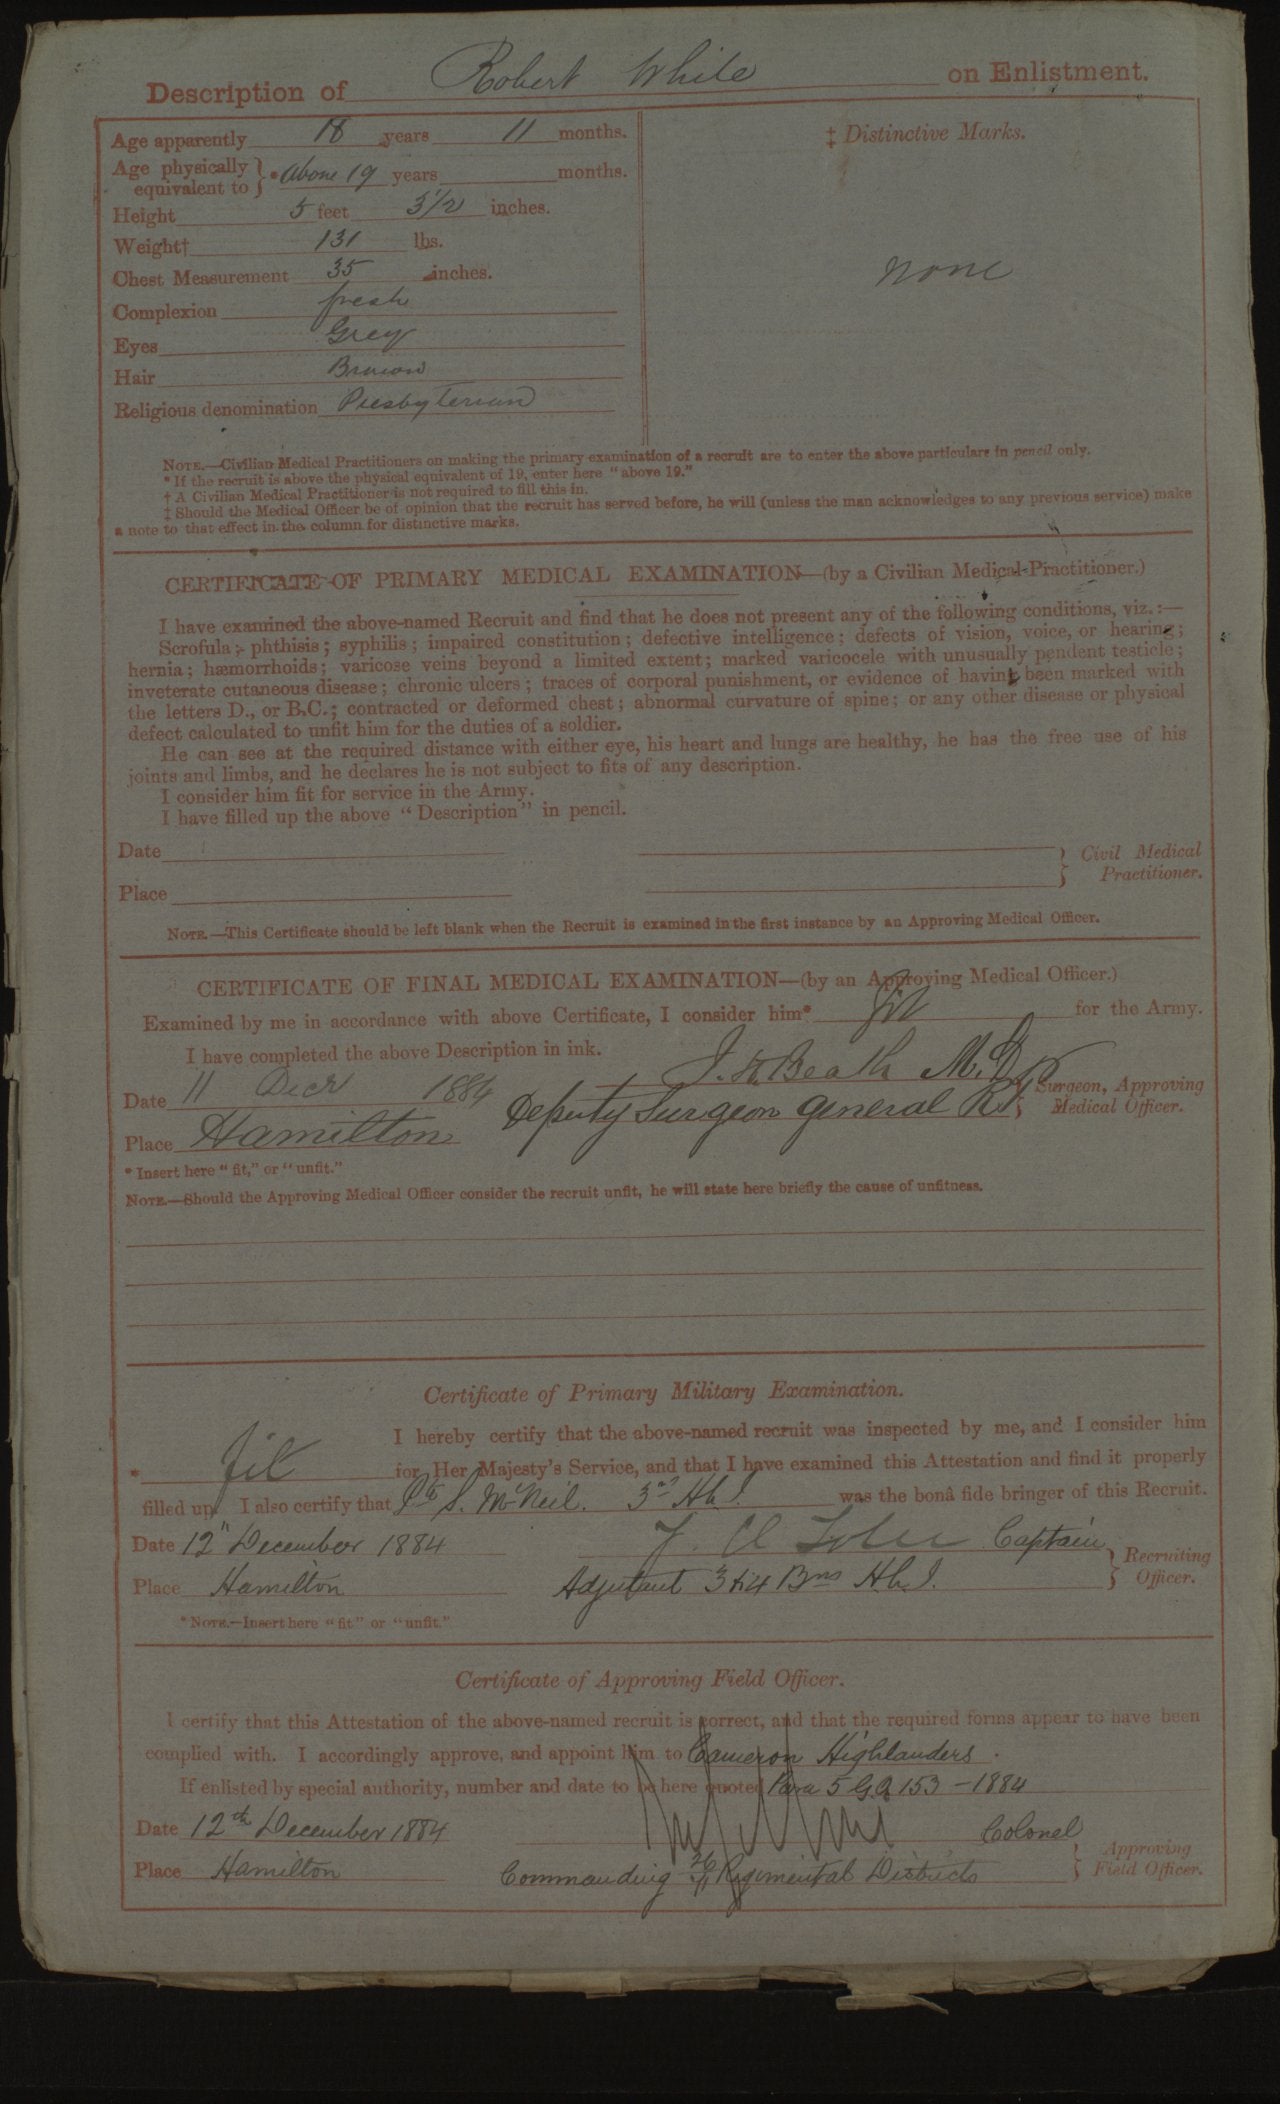 Description of Robert White on Enlistment.
Age apparently 18 years 11 months.
Age physically equivalent to } * above 19 years months.
Height 5 feet 5 1/2 inches.
Weight† 131 lbs.
Chest Measurement 35 inches.
Complexion fresh
Eyes Grey
Hair Brown
Religious denomination Presbyterian
‡ Distinctive Marks.
none
NOTE.—Civilian Medical Practitioners on making the primary examination of a recruit are to enter the above particulars in pencil only.
* If the recruit is above the physical equivalent of 19, enter here "above 19."
† A Civilian Medical Practitioner is not required to fill this in.
‡ Should the Medical Officer be of opinion that the recruit has served before, he will (unless the man acknowledges to any previous service) make
a note to that effect in the column for distinctive marks.
CERTIFICATE OF PRIMARY MEDICAL EXAMINATION—(by a Civilian Medical Practitioner.)
I have examined the above-named Recruit and find that he does not present any of the following conditions, viz.:—
Scrofula; phthisis; syphilis; impaired constitution; defective intelligence; defects of vision, voice, or hearing;
hernia; hæmorrhoids; varicose veins beyond a limited extent; marked varicocele with unusually pendent testicle;
inveterate cutaneous disease; chronic ulcers; traces of corporal punishment, or evidence of having been marked with
the letters D., or B.C.; contracted or deformed chest; abnormal curvature of spine; or any other disease or physical
defect calculated to unfit him for the duties of a soldier.
He can see at the required distance with either eye, his heart and lungs are healthy, he has the free use of his
joints and limbs, and he declares he is not subject to fits of any description.
I consider him fit for service in the Army.
I have filled up the above "Description" in pencil.
Date } Civil Medical
Place } Practitioner.
NOTE.—This Certificate should be left blank when the Recruit is examined in the first instance by an Approving Medical Officer.
CERTIFICATE OF FINAL MEDICAL EXAMINATION—(by an Approving Medical Officer.)
Examined by me in accordance with above Certificate, I consider him* fit for the Army.
I have completed the above Description in ink.
Date 11 Decr 1884 Beath M.D. } Surgeon, Approving
Place Hamilton Deputy Surgeon General } Medical Officer.
* Insert here "fit," or "unfit."
NOTE.—Should the Approving Medical Officer consider the recruit unfit, he will state here briefly the cause of unfitness.
Certificate of Primary Military Examination.
I hereby certify that the above-named recruit was inspected by me, and I consider him
* fit for Her Majesty's Service, and that I have examined this Attestation and find it properly
filled up. I also certify that Pte S. McNeil. 3rd H.L.I. was the bonâ fide bringer of this Recruit.
Date 12" December 1884 Captain } Recruiting
Place Hamilton Adjutant 3 & 4 Bns H.L.I. } Officer.
* NOTE.—Insert here "fit" or "unfit."
Certificate of Approving Field Officer.
I certify that this Attestation of the above-named recruit is correct, and that the required forms appear to have been
complied with. I accordingly approve, and appoint him to Cameron Highlanders.
If enlisted by special authority, number and date to be here quoted Para 5 G.O. 153 - 1884
Date 12th December 1884 Colonel } Approving
Place Hamilton Commanding Regimental Districts } Field Officer.